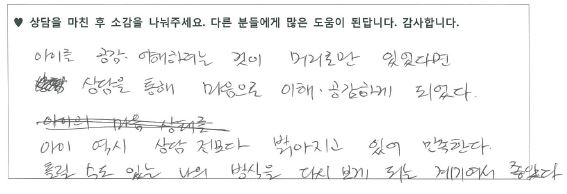 ♥ 상담을 마친 후 소감을 나눠주세요. 다른 분들에게 많은 도움이 된답니다. 감사합니다.
아이를 공감·이해하려는 것이 머리로만 있었다면
상담을 통해 마음으로 이해·공감하게 되었다.
아이의 마음 상태를
아이 역시 상담 전보다 밝아지고 있어 만족한다.
틀릴 수도 있는 나의 방식을 다시 보게 되는 계기여서 좋았다